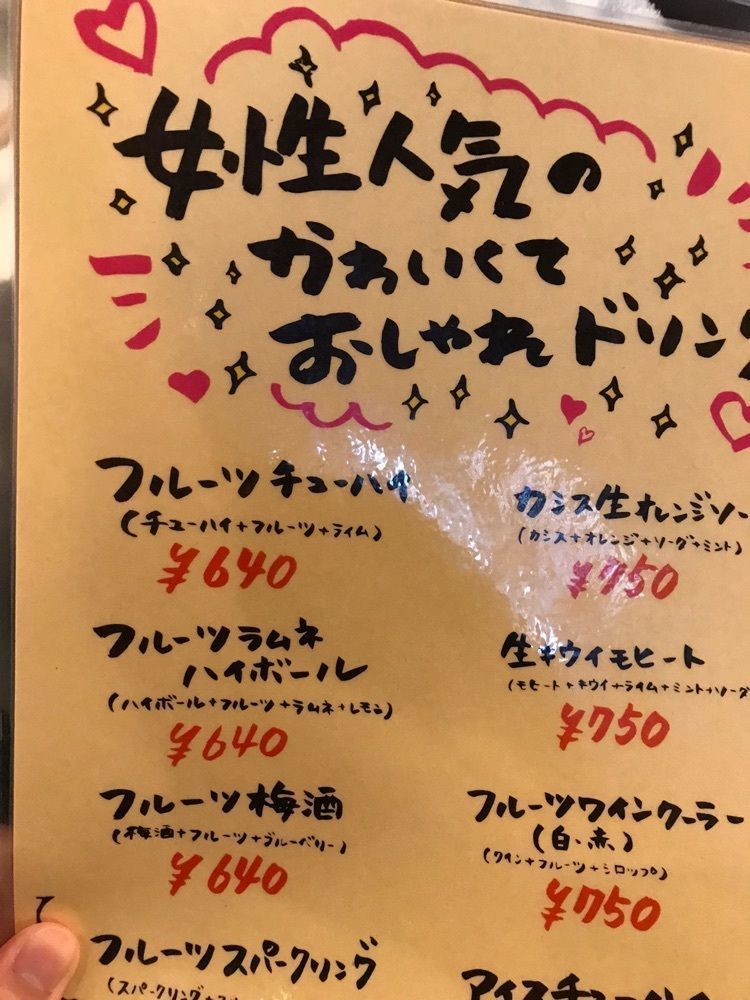 女性人気の
かわいくて
おしゃれドリンク
フルーツチューハイ
(チューハイ+フルーツ+ライム)
¥640
フルーツラムネ
ハイボール
(ハイボール+フルーツ+ラムネ+レモン)
¥640
フルーツ梅酒
(梅酒+フルーツ+ブルーベリー)
¥640
フルーツスパークリング
(スパークリング+
カシス生オレンジソー
(カシス+オレンジ+ソーダ+ミント)
¥750
生キウイモヒート
(モヒート+キウイ+ライム+ミント+ソーダ
¥750
フルーツワインクーラー
(白・赤)
(ワイン+フルーツ+シロップ)
¥750